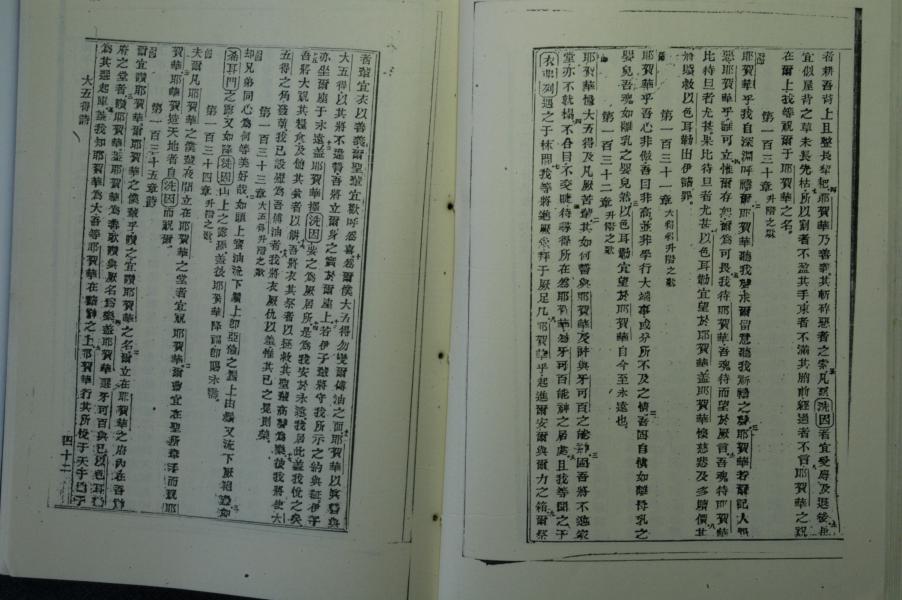 者耕吾背上且整長犁耙耶賀華乃善義其斬碎惡者之索凡恶洗因者宜受辱及退後
宜似屋背之草未長先枯所以割者不盈其手束者不滿其胸前經過者不言耶賀華之祝
在爾上我等祝爾于耶賀華之名
第一百三十章升階之歌
耶賀華乎我自深淵呼籲爾耶賀華聽我聲求爾留意聽我
惡耶賀華乎誰可立惟爾存恕爾為可畏我待耶賀華吾魂待而望於厥言吾魂待耶賀華
比待旦者尤甚果比待旦者尤甚以色耳勒宜望於耶賀華蓋耶賀華懷慈悲及多贖價
贖救以色耳勒出伊諸罪
第一百三十一章大五得升階之歌
耶賀華乎吾心非傲吾目非高並非學行大端事或分所不及之情吾因自慎如離母乳之
嬰兒吾魂如離乳之嬰兒然以色耳勒宜望於耶賀華自今至永遠也
第一百三十二章升階之歌
耶賀華憶大五得及凡厥苦難其如何誓與耶賀華及許與牙可百之能神因吾將不進家
堂亦不就榻不合目不交睫待尋得所在為耶賀華為牙可百能神之居處且我等聞之于
遇之于林間我等將進厥堂拜于厥足几耶賀華乎起進爾安爾與爾力之箱爾祭
者宜衣以善義爾聖輩宜歡呼為爾僕大五得勿變爾傅油之面耶賀華以真誓與
大五得以其將不違背吾將立爾身之實於爾座上若伊子輩將守我所示之約與証伊子
亦坐爾座于永遠蓋耶賀華擇洗因要之為厥居所是為我安於永遠我居此蓋我悅之矣
吾將大祝其糧食及飽其貧者以餅吾將衣其祭者以拯救其聖輩高聲為樂彼我將使大
五得之角發芽我已設燈為吾傅油者我將衣厥仇以羞惟其己之冕則榮
第一百三十三章大五得升階之歌
却兄弟同心為何等美好哉如頭上寶油流下鬚上即亞倫之鬚上由鬚又流下厥袍
耳門之露又如降洗因山上之露蓋彼耶賀華降福即賜永職
第一百三十四章升階之歌
夫爾凡耶賀華之僕輩夜間立在耶賀華之堂者宜祝耶賀華爾曹宜在聖所舉手而祝耶
賀華耶賀華造天地者自洗因而祝爾
第一百三十五章詩
爾宜讚耶賀華爾耶賀華之僕輩乎讚之宜讚耶賀華之名爾立在耶賀華之府內在吾神
府之堂者讚耶賀華蓋耶賀華為善歌讚與厥名為樂蓋耶賀華選牙可百與己以色耳勒
為其選起蓋我知耶賀華為大吾等耶賀華在諸神之上耶賀華行其所悅于天于
大五得詩
四十二